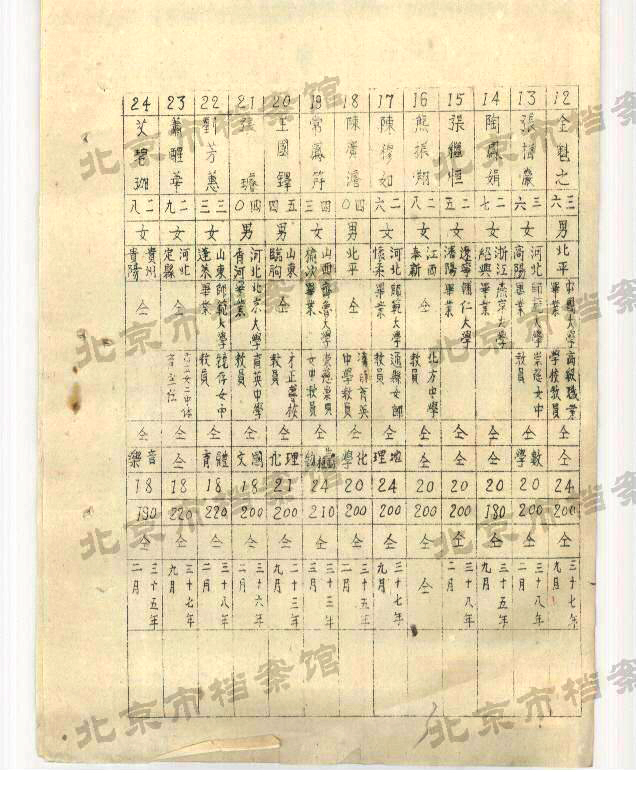 12
金魁之
三六
男
北平
中國大學
畢業
高級職業
學校教員
仝
仝
24
200
仝
三十七年
九月
13
三六
女
河北
高陽
師範大學
畢業
崇慈女中
教員
仝
數學
20
200
仝
三十八年
二月
14
陶鳳娟
二七
女
浙江
紹興
燕京大學
畢業
仝
仝
20
180
仝
三十五年
九月
15
張繼恒
二五
女
遼寧
瀋陽
輔仁大學
畢業
仝
仝
20
200
仝
三十八年
二月
16
熊振翔
二八
女
江西
奉新
仝
北方中學
教員
仝
仝
20
200
仝
仝
17
陳穆如
二六
女
河北
懷柔
師範大學
畢業
通縣女師
教員
仝
地理
24
200
仝
三十七年
九月
18
四0
男
北平
仝
育英
中學教員
仝
化學
20
200
仝
三十五年
二月
19
常鳳符
四三
女
山西
榆次
齊魯大學
畢業
崇慈崇貞
女中教員
仝
24
210
仝
三十三年
三月
20
王國鐸
五四
男
山東
臨朐
仝
教員
仝
理化
21
200
仝
二十三年
二月
21
張璿
四0
男
河北
青河
北京大學
畢業
育英中學
教員
仝
國文
18
200
仝
三十六年
二月
22
劉芳蕙
三三
女
山東
蓬萊
師範大學
畢業
競存女中
教員
仝
體育
18
220
仝
三十八年
二月
23
蕭醒華
二九
女
河北
定縣
仝
仝
仝
18
220
仝
三十七年
九月
24
二八
女
貴州
貴陽
仝
仝
音樂
18
190
仝
三十五年
二月
北京市档案馆
北京市档案馆
北京市档案馆
北京市档案馆
北京市档案馆
北京市档案馆
北京市档案馆
北京市档案馆